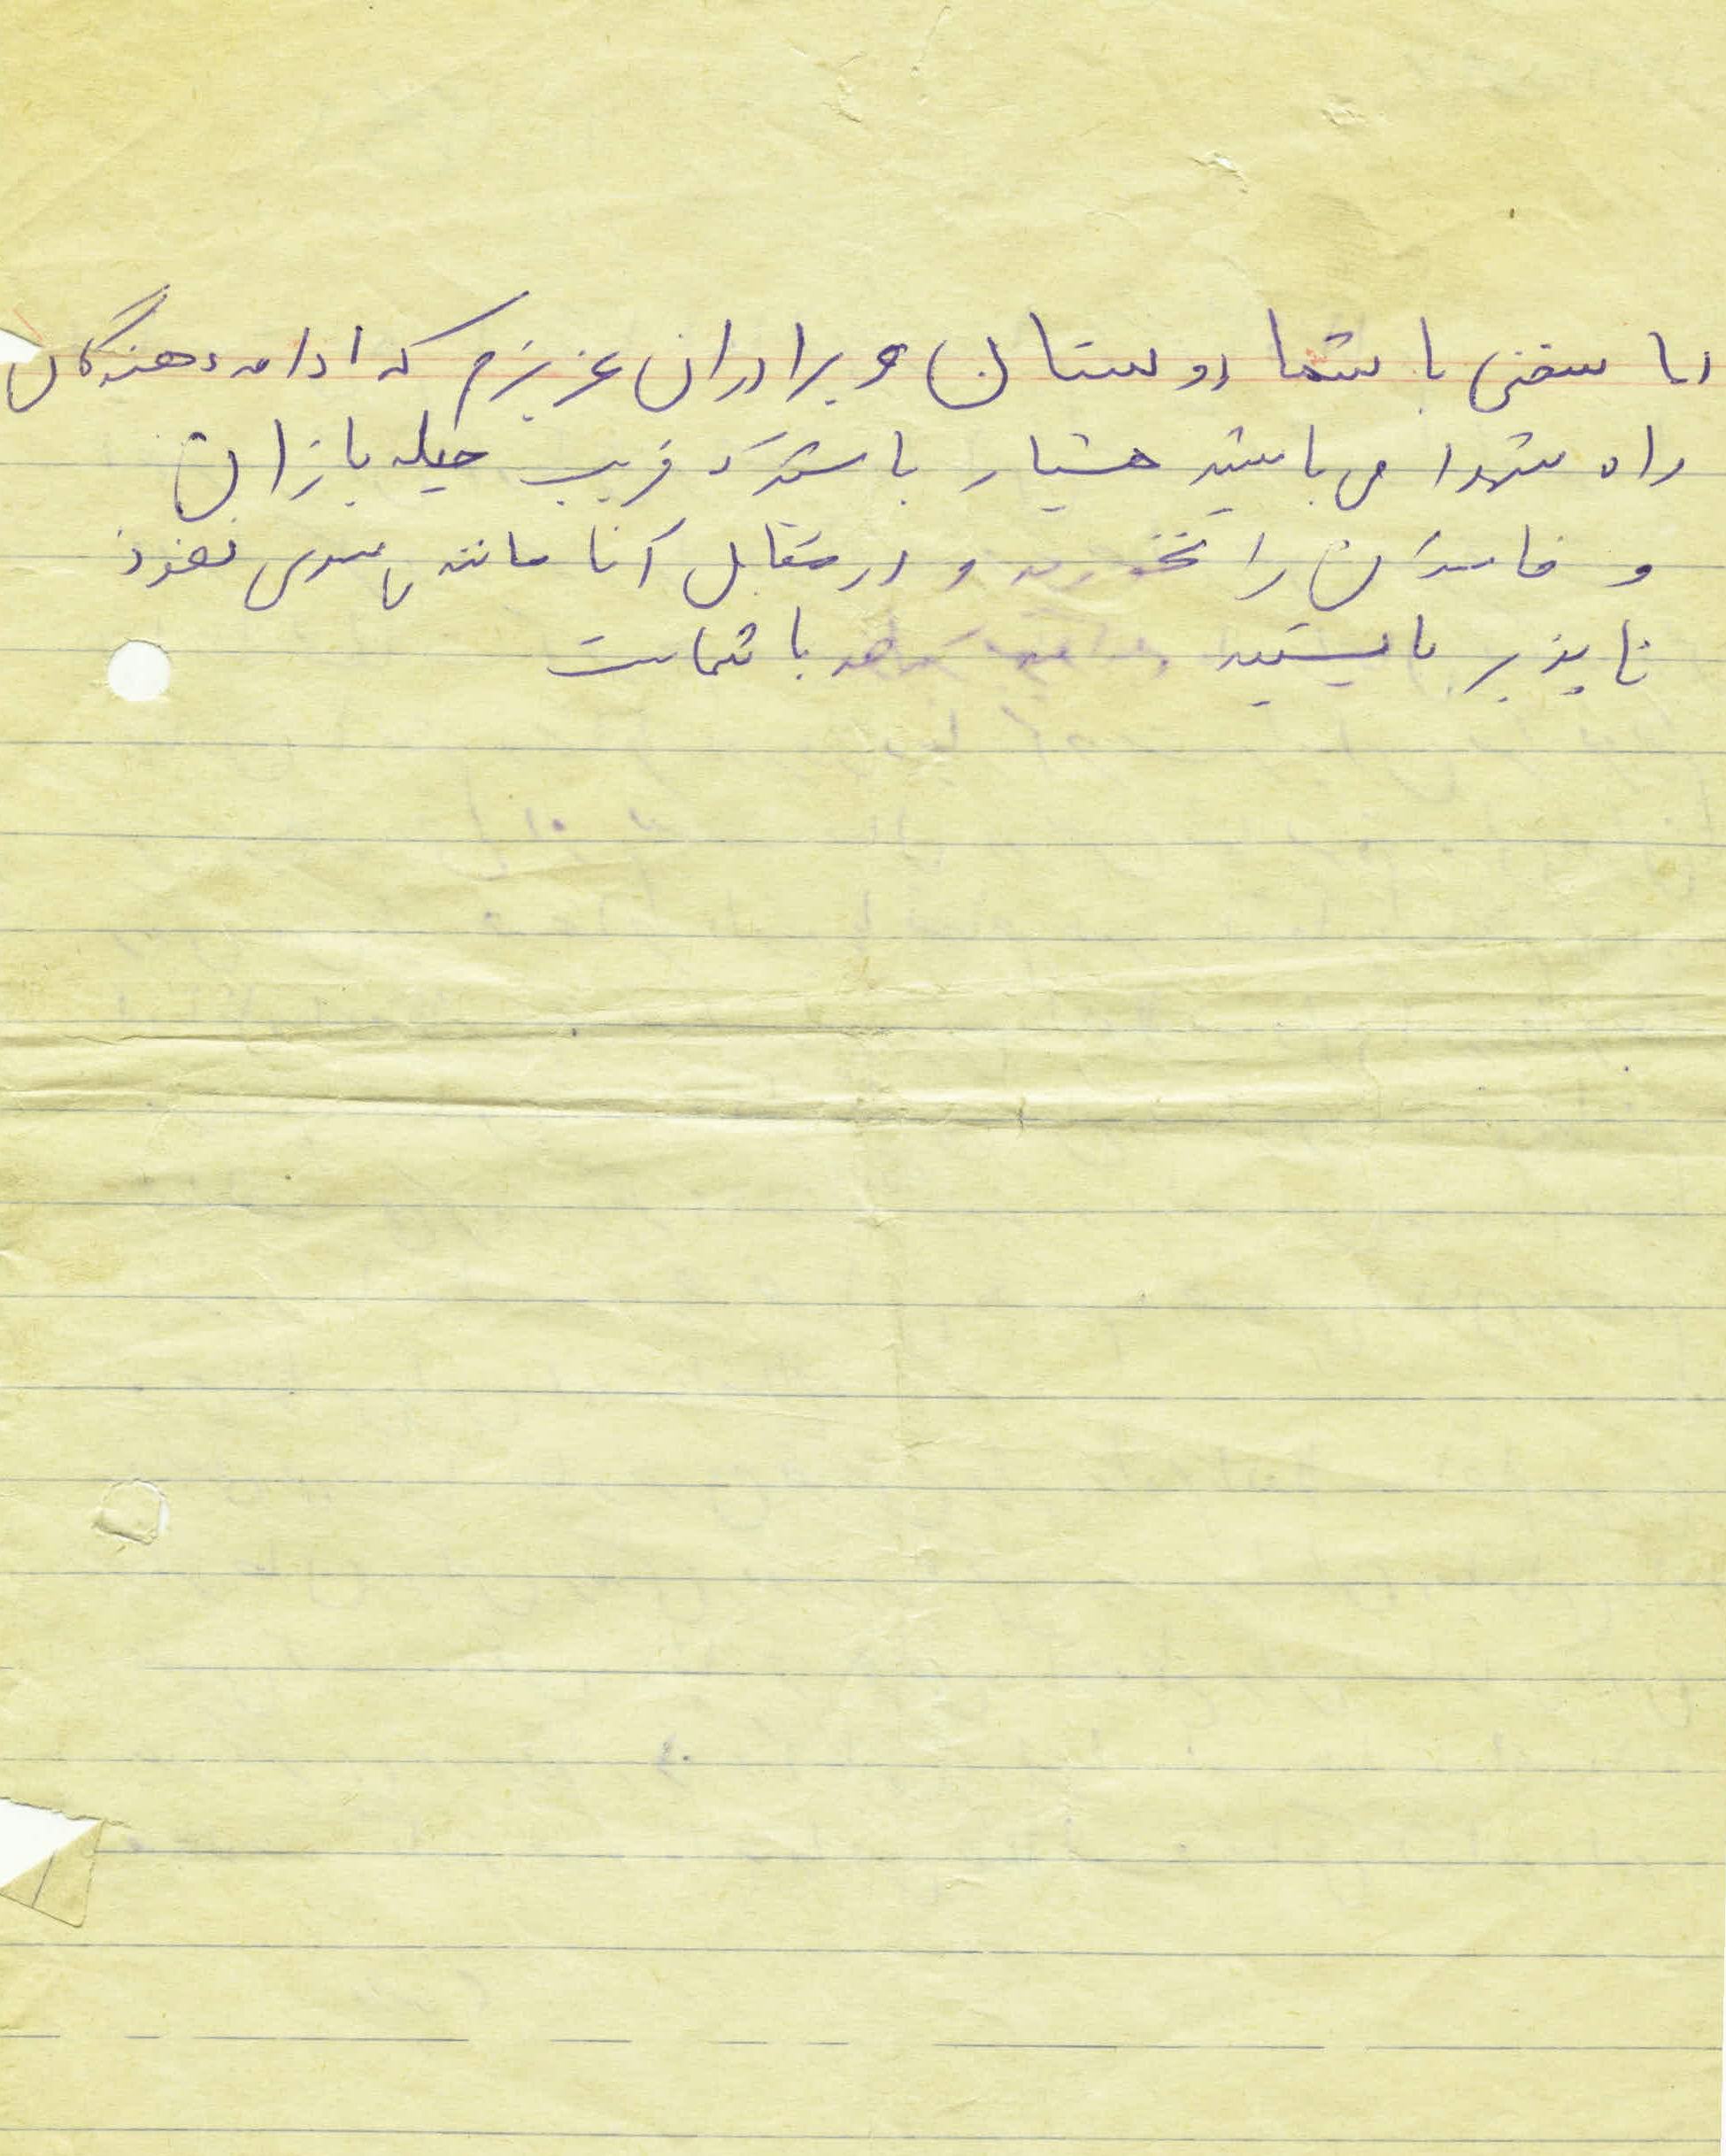 اما سخنی با شما دوستان و برادران عزیزم که ادامه دهندگان
راه شهدا می باشید هشیار باشید که فریب حیله بازان
و فاسدان را نخورید و در مقابل آنا مانند سدی نفوذ
ناپذیر بایستید با شماست